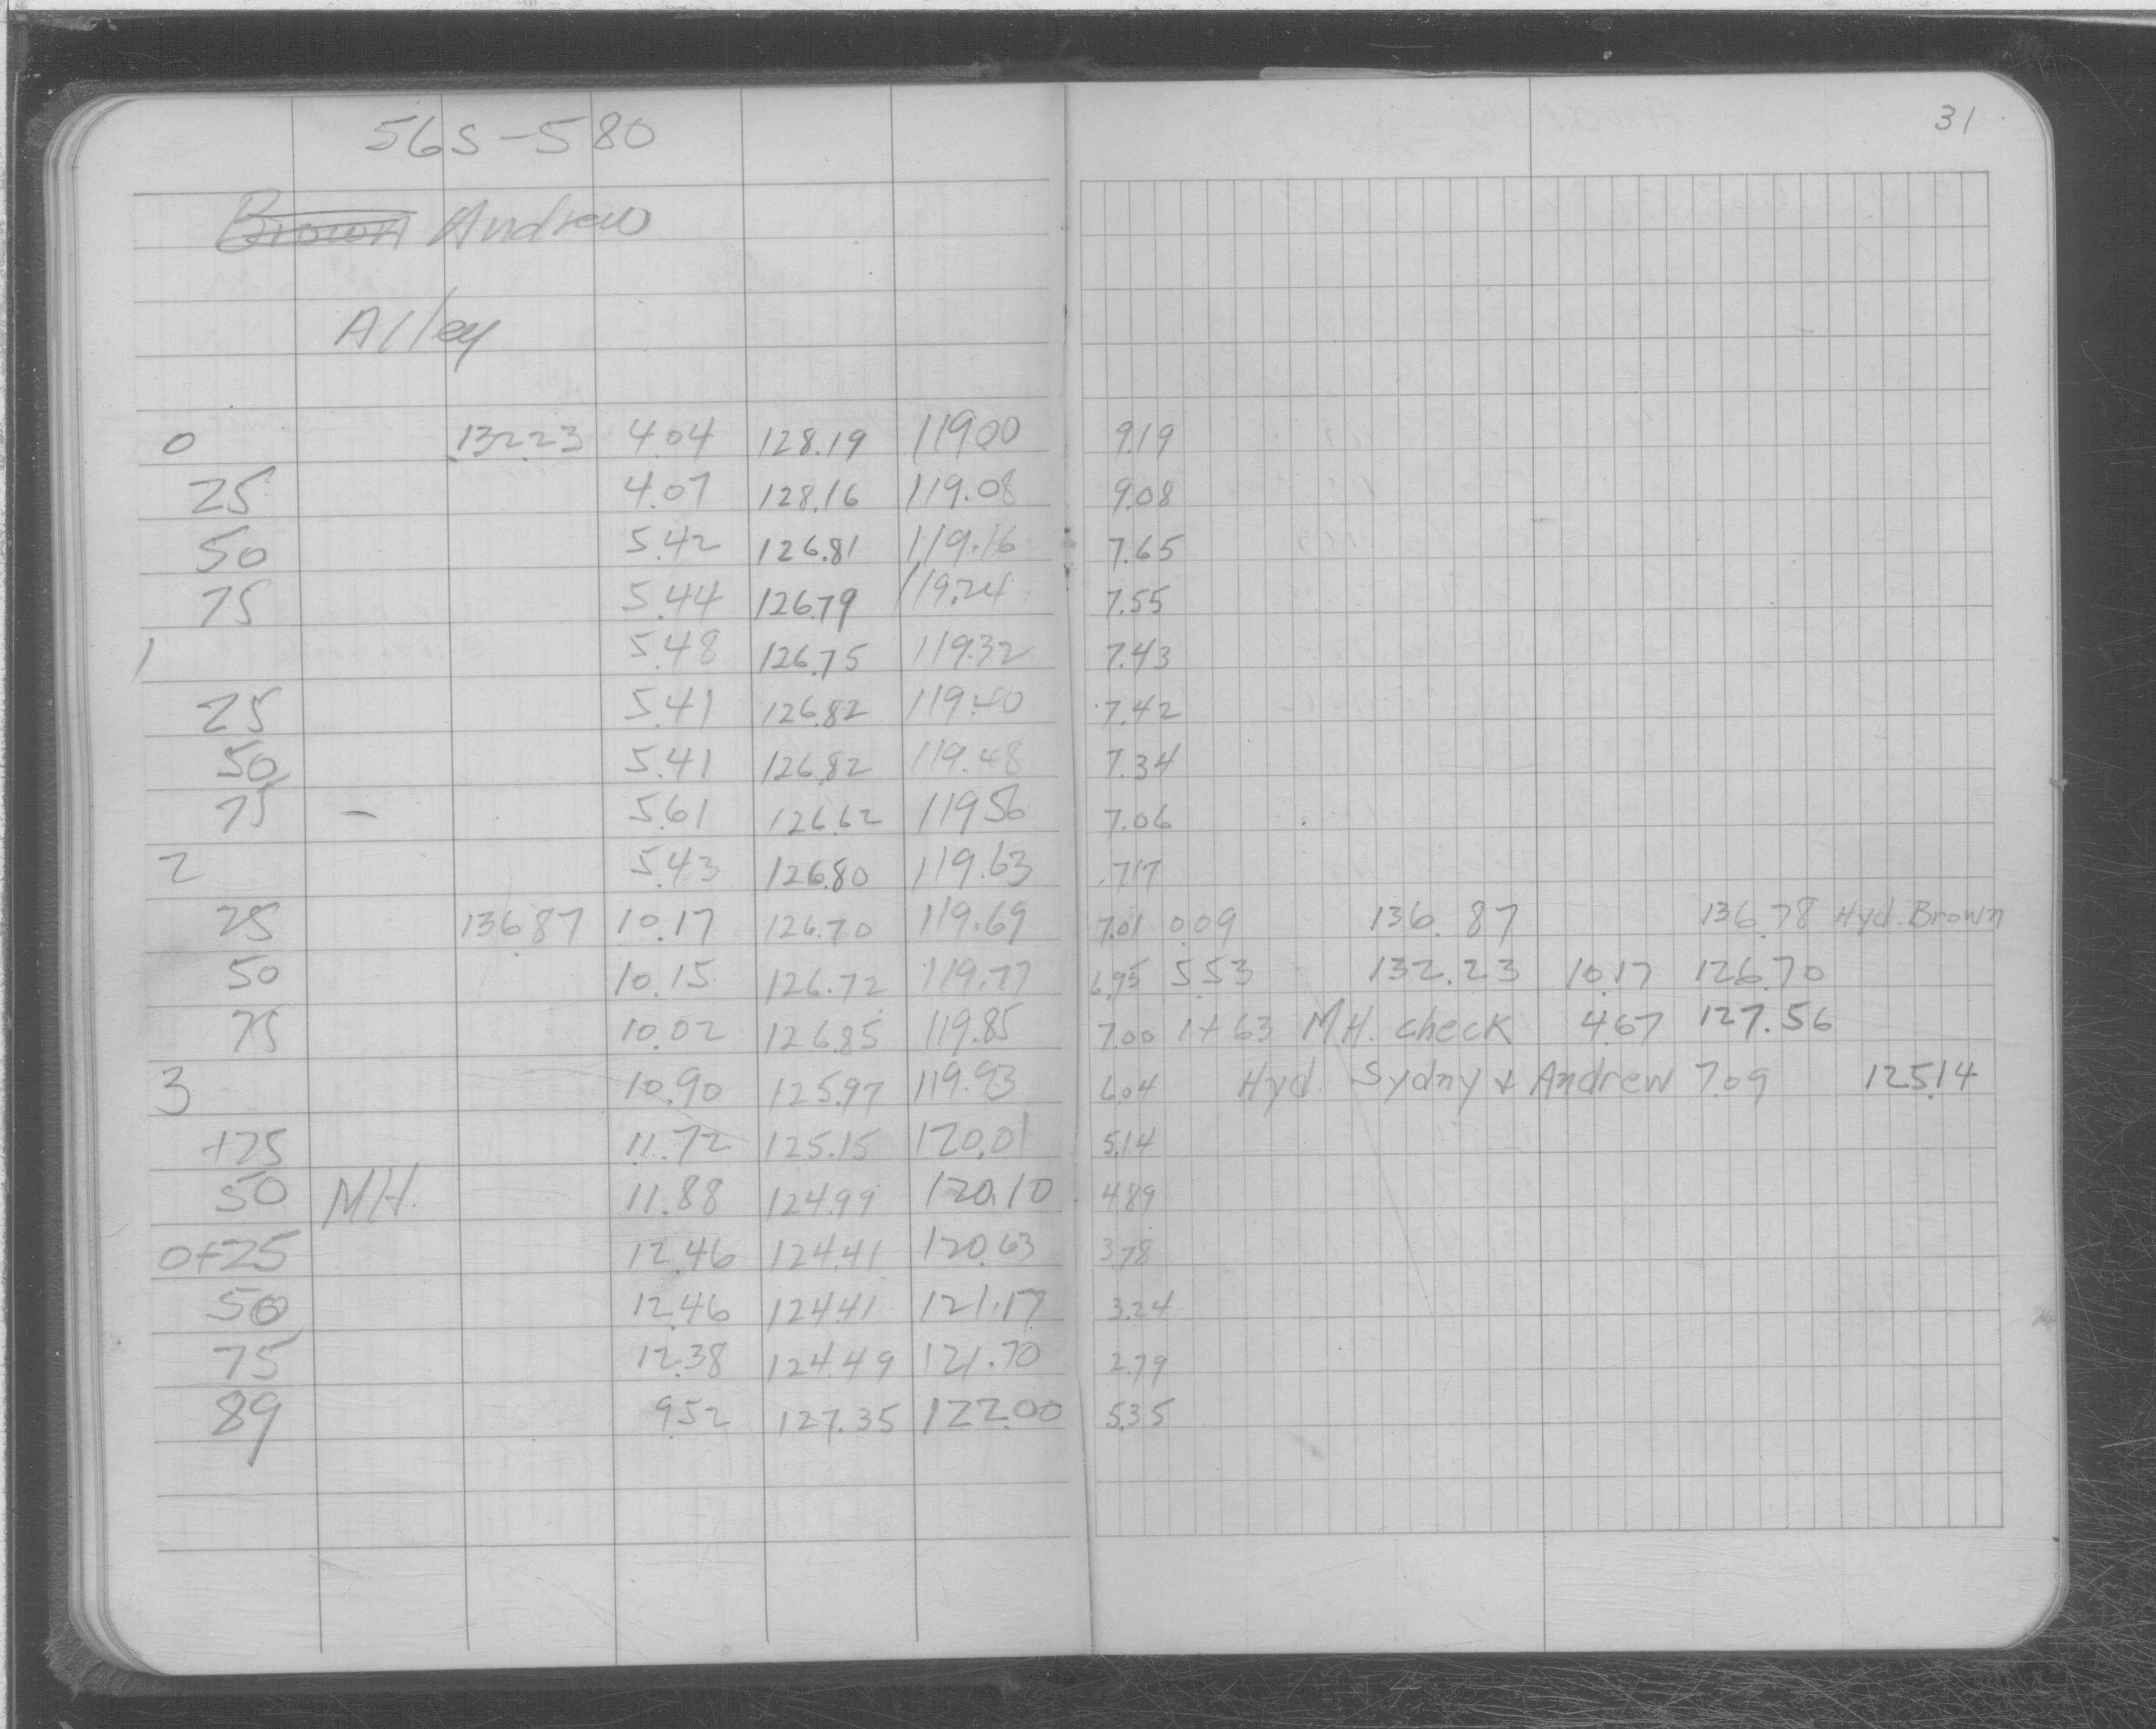 31
56S-580
Brown Andrew
Alley
0 132.23 4.04 128.19 119.00 9.19
25 4.07 128.16 119.08 9.08
50 5.42 126.81 119.16 7.65
75 5.44 126.79 119.24 7.55
1 5.48 126.75 119.32 7.43
25 5.41 126.82 119.40 7.42
50 5.41 126.82 119.48 7.34
75 - 5.61 126.62 119.56 7.06
2 5.43 126.80 119.63 7.17
25 136.87 10.17 126.70 119.69 7.01 0.09 136.87 136.78 Hyd. Brown
50 10.15 126.72 119.77 6.95 5.53 132.23 10.17 126.70
75 10.02 126.85 119.85 7.00 1+63 MH. check 4.67 127.56
3 10.90 125.97 119.93 6.04 Hyd. Sydny + Andrew 7.09 125.14
+25 11.72 125.15 120.01 5.14
50 MH. 11.88 124.99 120.10 4.89
0+25 12.46 124.41 120.63 3.78
50 12.46 124.41 121.17 3.24
75 12.38 124.49 121.70 2.79
89 9.52 127.35 122.00 5.35